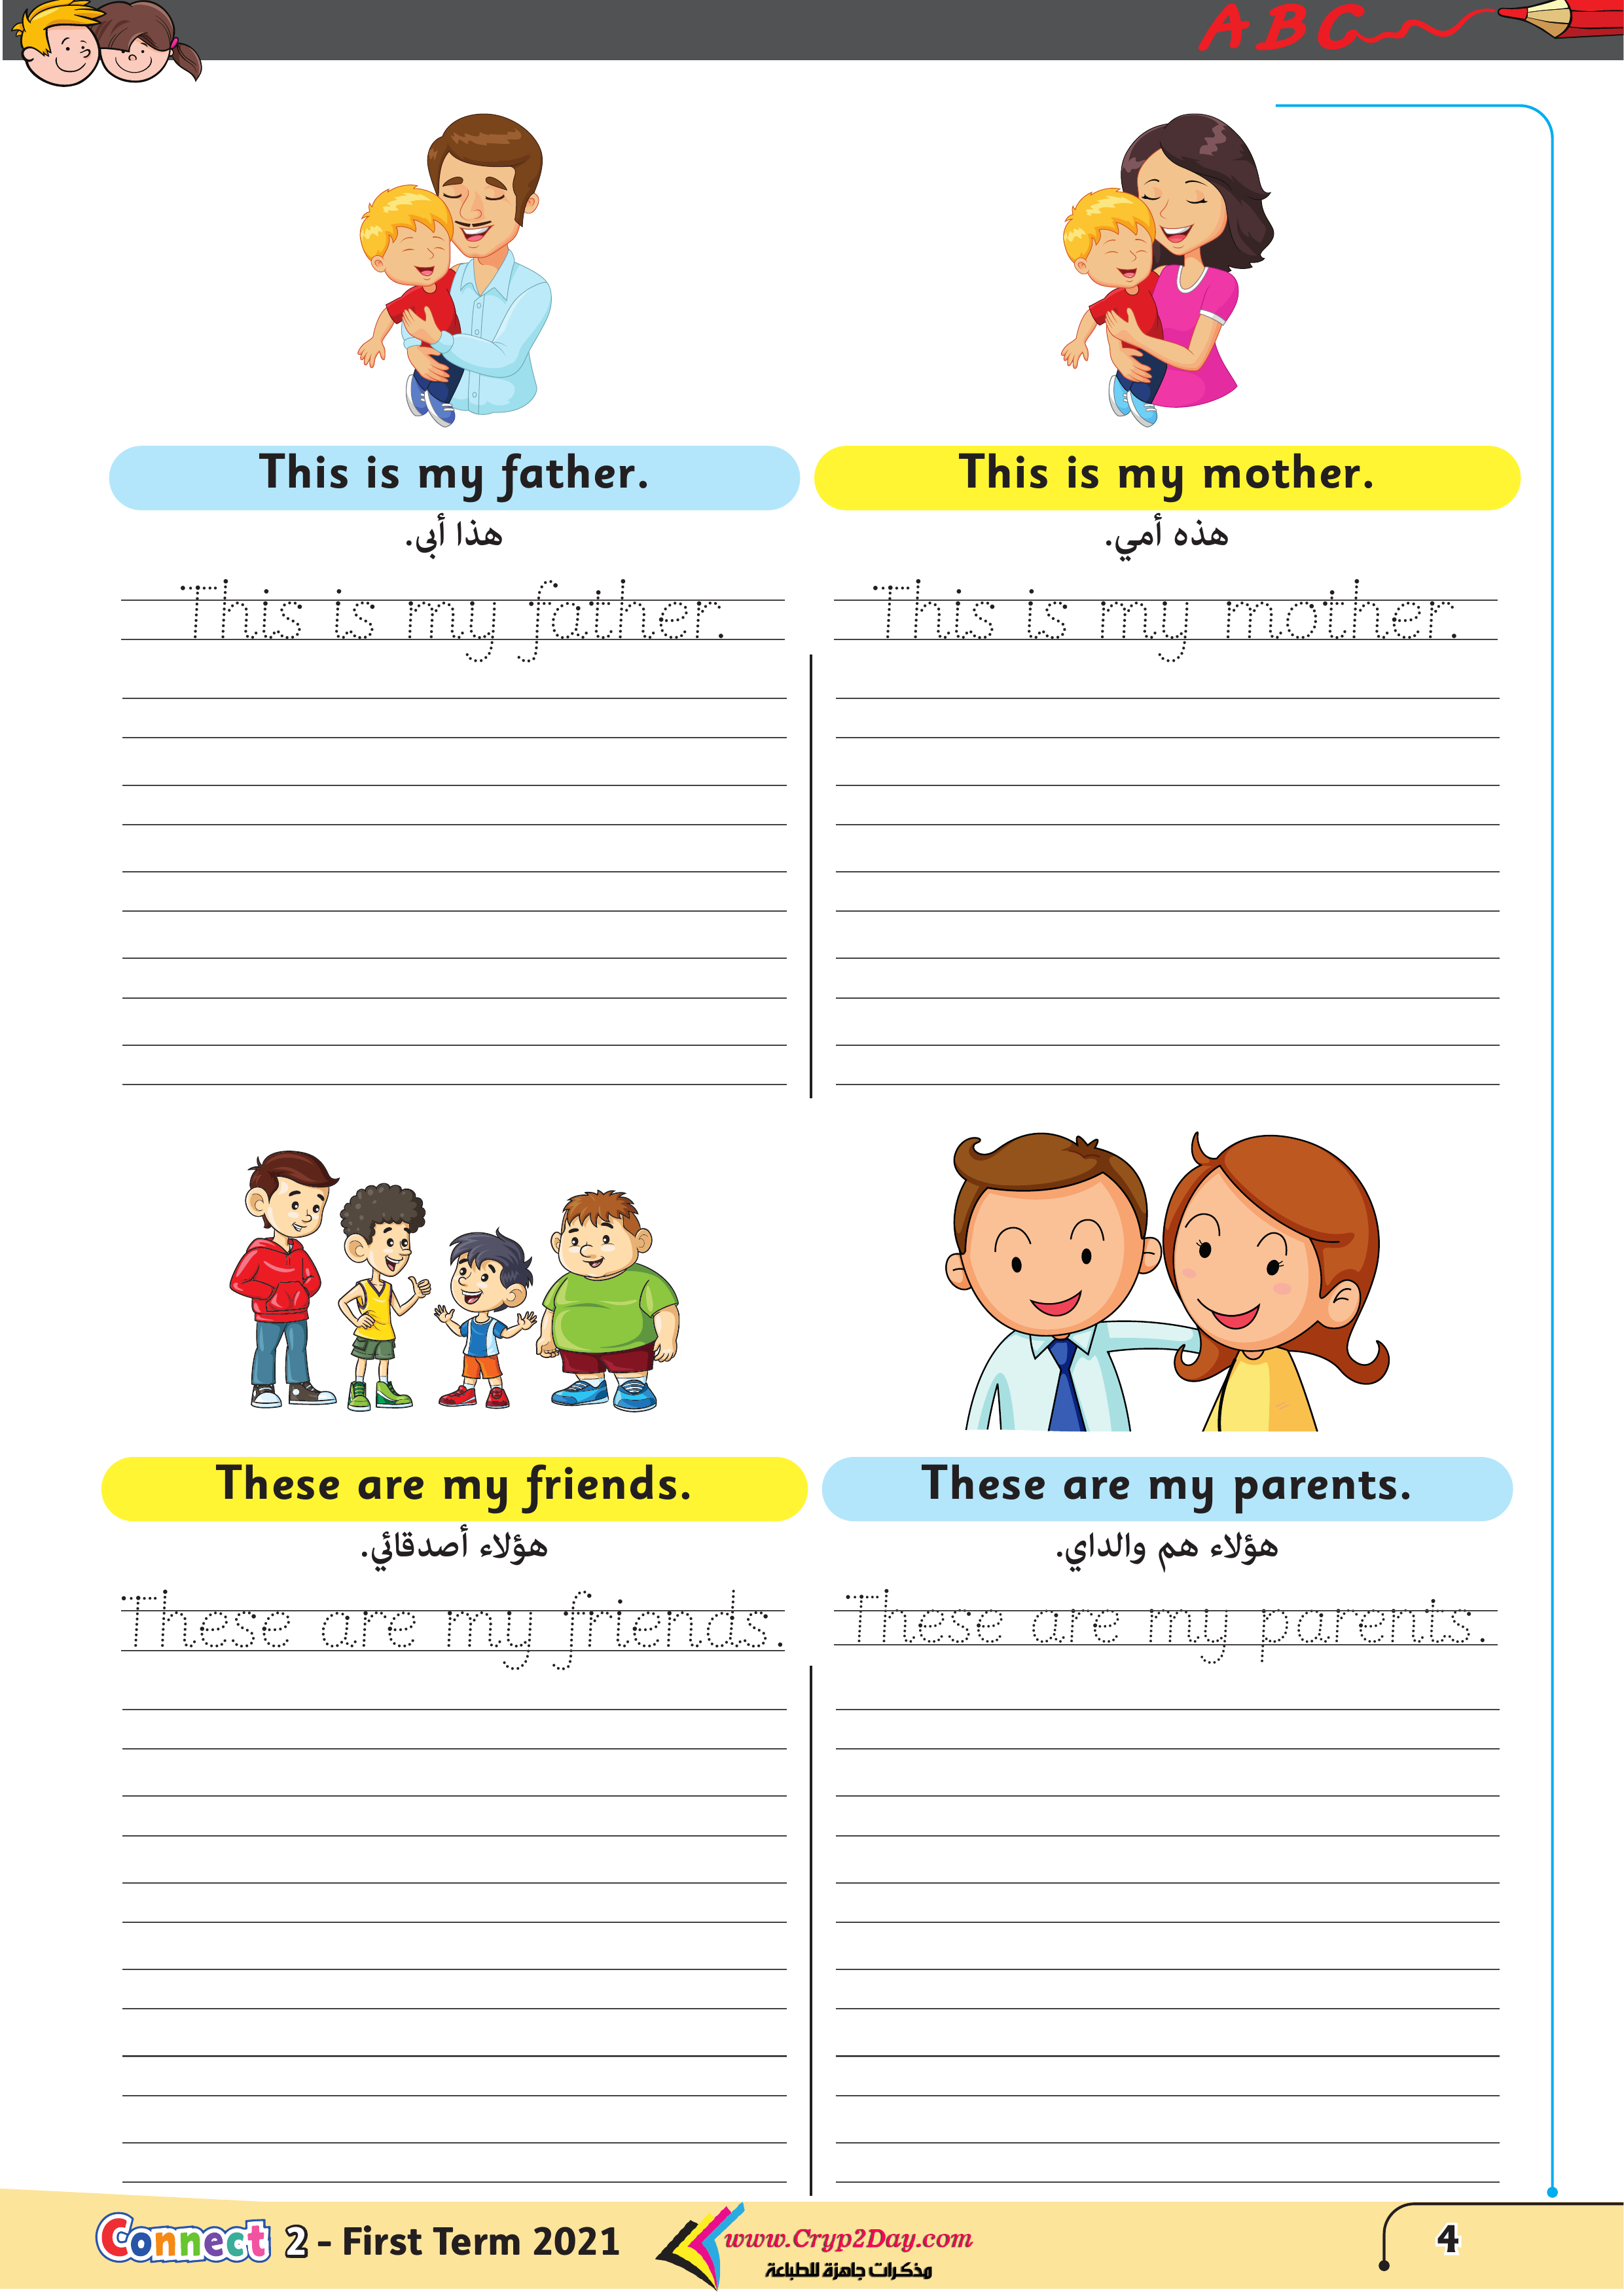 ABC
This is my father.
هذا أبى.
This is my father.
This is my mother.
هذه أمي.
This is my mother.
These are my friends.
هؤلاء أصدقائي.
These are my friends.
These are my parents.
هؤلاء هم والداي.
These are my parents.
Connect 2 - First Term 2021
www.Cryp2Day.com
مذكرات جاهزة للطباعة
4